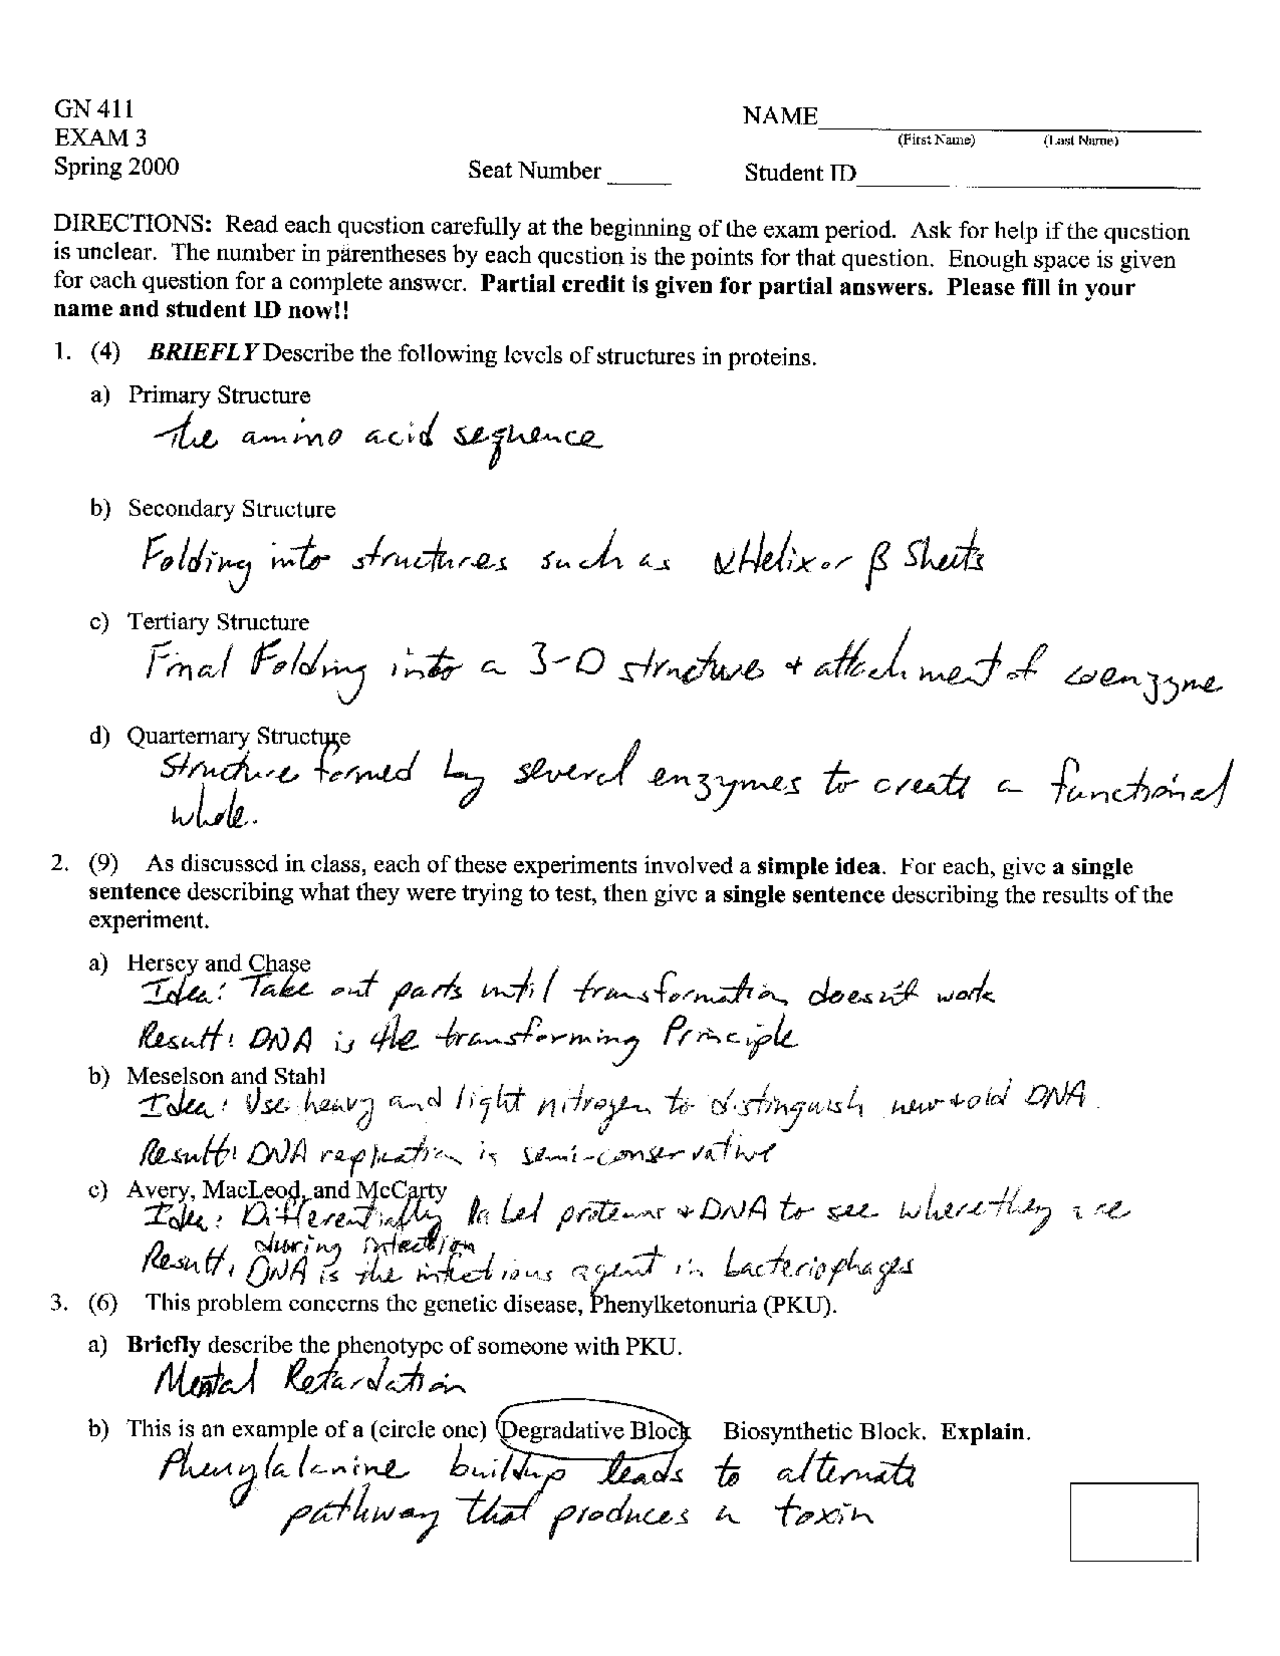 GN 411
NAME
EXAM 3
(First Name) (Last Name)
Spring 2000
Seat Number
Student ID
DIRECTIONS: Read each question carefully at the beginning of the exam period. Ask for help if the question
is unclear. The number in parentheses by each question is the points for that question. Enough space is given
for each question for a complete answer. Partial credit is given for partial answers. Please fill in your
name and student ID now!!
1. (4) BRIEFLY Describe the following levels of structures in proteins.
a) Primary Structure
The amino acid sequence
b) Secondary Structure
Folding into structures such as α Helix or β Sheets
c) Tertiary Structure
Final Folding into a 3-D structure + attachment of coenzyme
d) Quarternary Structure
Structure formed by several enzymes to create a functional
whole.
2. (9) As discussed in class, each of these experiments involved a simple idea. For each, give a single
sentence describing what they were trying to test, then give a single sentence describing the results of the
experiment.
a) Hersey and Chase
Idea: Take out parts until transformation doesn't work
Result: DNA is the transforming Principle
b) Meselson and Stahl
Idea: Use heavy and light nitrogen to distinguish new + old DNA.
Result: DNA replication is semi-conservative
c) Avery, MacLeod, and McCarty
Idea: Differentially label proteins + DNA to see where they are
during infection
Result: DNA is the infectious agent in bacteriophages
3. (6) This problem concerns the genetic disease, Phenylketonuria (PKU).
a) Briefly describe the phenotype of someone with PKU.
Mental Retardation
b) This is an example of a (circle one) Degradative Block Biosynthetic Block. Explain.
Phenylalanine buildup leads to alternate
pathway that produces a toxin